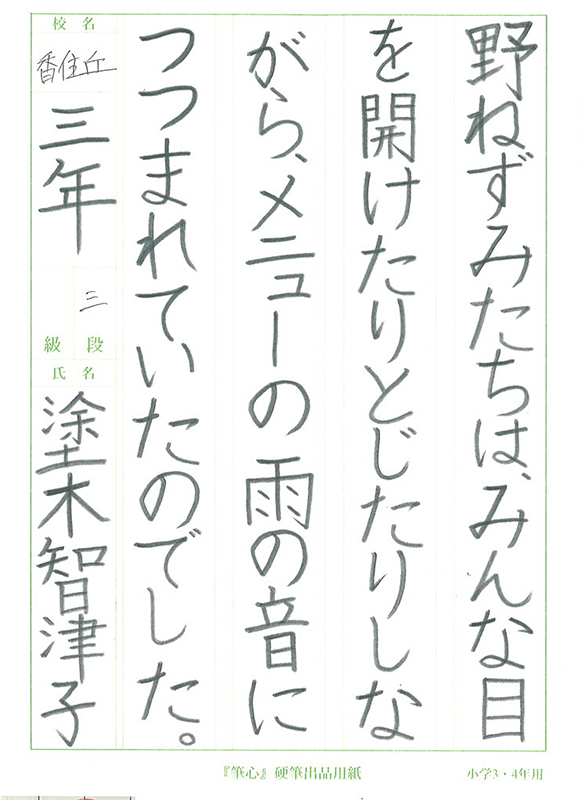 野ねずみたちは、みんな目
を開けたりとじたりしな
がら、メニューの雨の音に
つつまれていたのでした。
校名
香住丘
三年
段
級
三
氏名
塗木智津子
『筆心』硬筆出品用紙
小学3・4年用